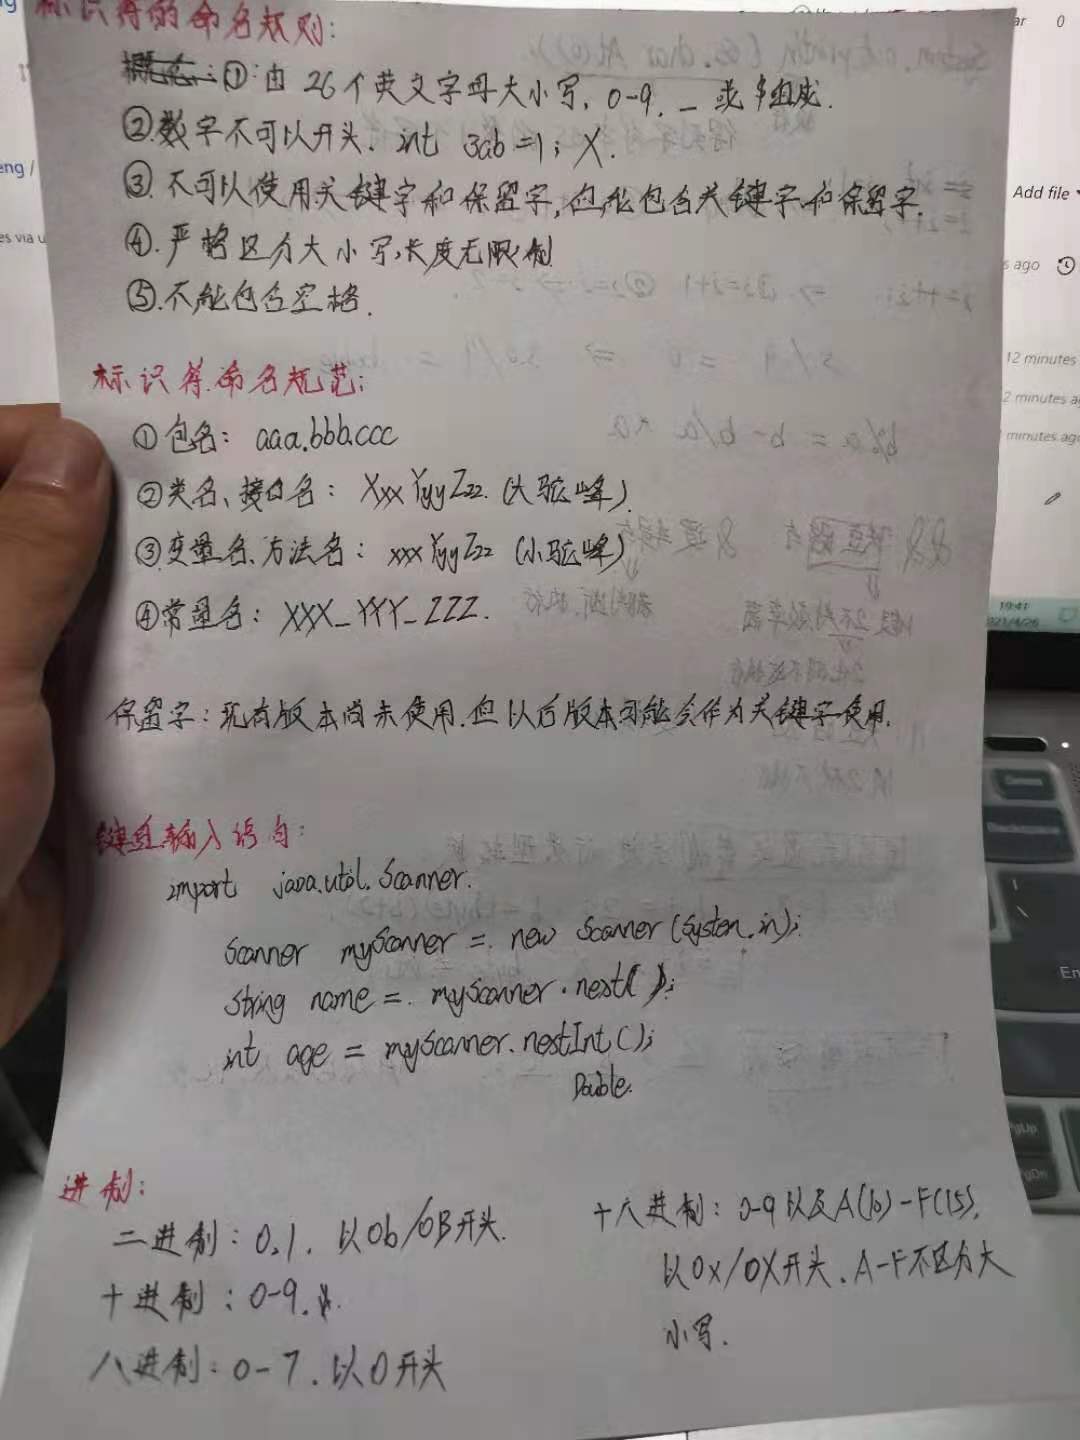 标识符的命名规则:
①:由26个英文字母大小写, 0-9, _ 或 $组成.
②.数字不可以开头. int 3ab=1; X.
③.不可以使用关键字和保留字,但能包含关键字和保留字.
④.严格区分大小写,长度无限制
⑤.不能包含空格.
标识符命名规范:
①包名: aaa.bbb.ccc
②类名、接口名: XxxYyyZzz. (大驼峰)
③变量名、方法名: xxxYyyZzz (小驼峰)
④常量名: XXX_YYY_ZZZ.
保留字:现有版本尚未使用.但以后版本可能会作为关键字使用.
键盘输入语句:
import java.util.Scanner.
Scanner myScanner = new Scanner(System.in);
String name = myScanner.nest();
int age = myScanner.nestInt();
Double.
进制:
二进制: 0,1. 以0b/0B开头.
十进制: 0-9.
八进制: 0-7. 以0开头
十六进制: 0-9以及A(10)-F(15).
以0x/0X开头. A-F不区分大
小写.
Add file
s ago
12 minutes
2 minutes a
minutes ago
eng /
es via u
ar 0
19:41
021/4/26
Backspace
En
PgUp
PgDn